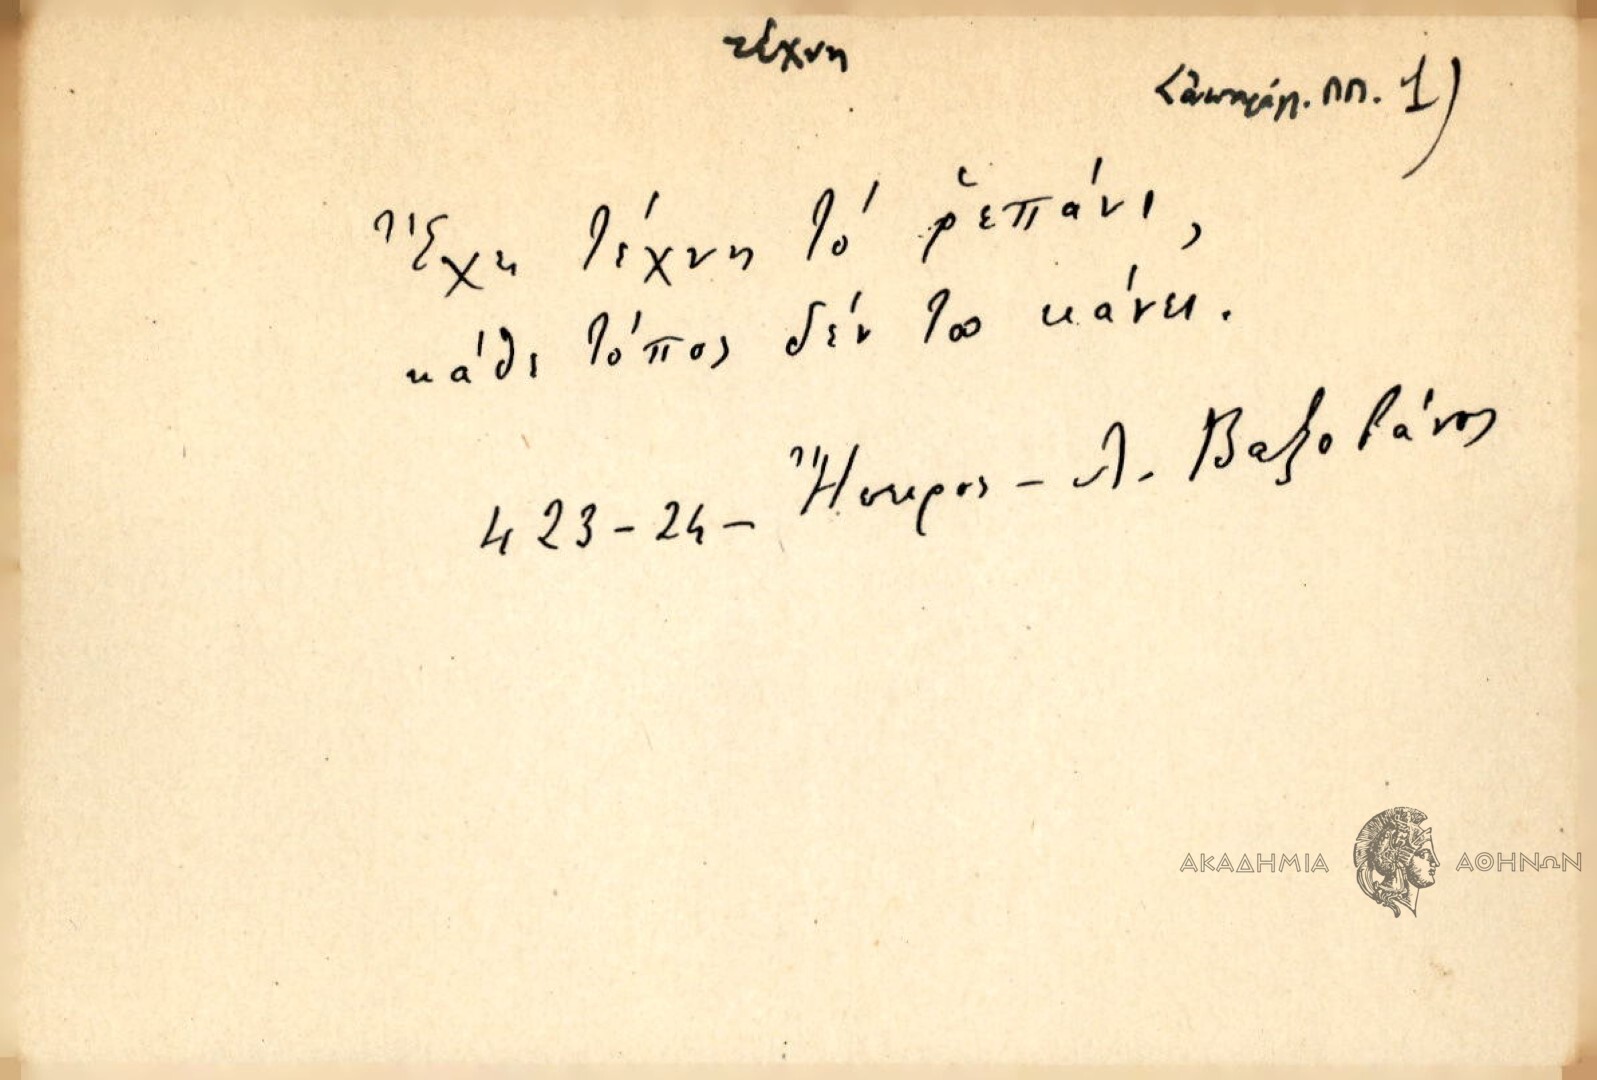 τέχνη
ππ. 1)
Ἔχει τέχνη τό ῥεπάνι,
κάθε τόπος δέν το κάνει.
423-24- Ἤπειρος - Λ. Βαζοβάνος
ΑΚΑΔΗΜΙΑ ΑΘΗΝΩΝ